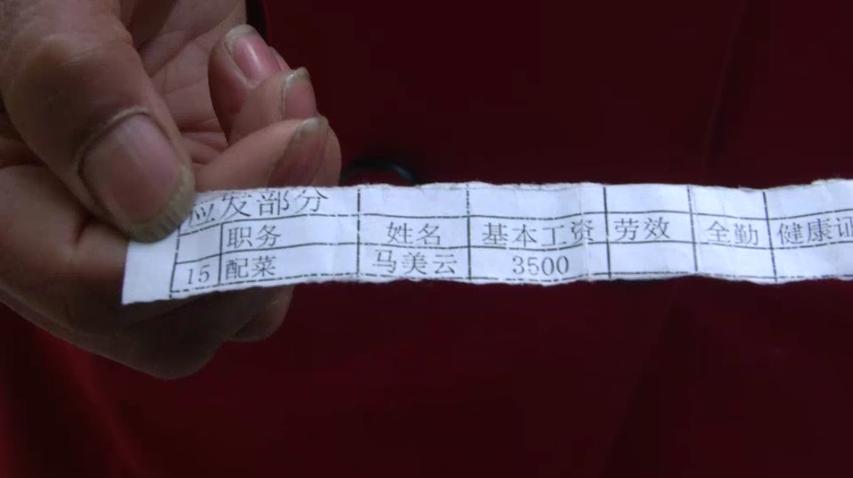 应发部分
职务 姓名 基本工资 劳效 全勤 健康证
15 配菜 马美云 3500